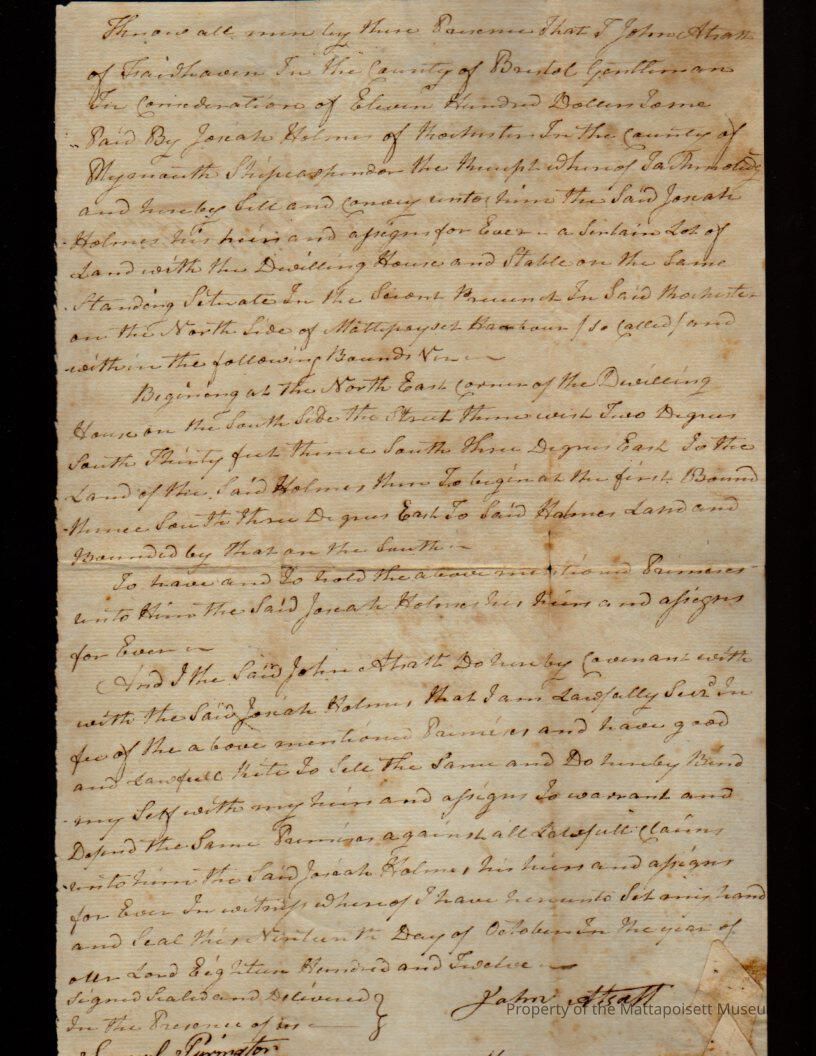 Know all men by these Presence That I John Atsatt
of Fairhaven In the County of Bristol Gentleman
In Consideration of Eleven Hundred Dollers To me
Paid By Josiah Holmes of Rochester In the County of
Plymouth Shipcarpender the Receipt whereof I acknoledg
and hereby Sell and Convey unto him the Said Josiah
Holmes his heirs and assigns for Ever a Sertain Lot of
Land with the Dwilling House and Stable on the Same
Standing Situate In the Second Precinct In Said Rochester
on the North Side of Mattepoyset Harbour (so Called) and
within the following Bounds Viz
Begining at the North East Corner of the Dwilling
House on the South Side the Street thence west Two Degrees
South Thirty feet thence South three Degrees East To the
Land of the Said Holmes then To begin at the first Bound
thence South three Degrees East To Said Holmes Land and
Bounded by that on the South
To have and To hold the above mentioned Primeses
unto Him the Said Josiah Holmes his heirs and assigns
for Ever
And I the Said John Atsatt Do hereby Covenant with
with the Said Josiah Holmes that I am Lawfully Seizd In
fee of the above mentioned Primises and have good
and Lawfull Rite To Sell the Same and Do hereby Bind
my Self with my heirs and assigns To warrant and
Defend the Same Primises against all Lawfull Claims
unto him the Said Josiah Holmes his heirs and assigns
for Ever In witness whereof I have hereunto Set my hand
and Seal this Ninteenth Day of October In the year of
our Lord Eighteen Hundred and Twelve
Signed Sealed and Delivered
In the Presence of us
John Atsatt
Property of the Mattapoisett Museum
Samuel Purington